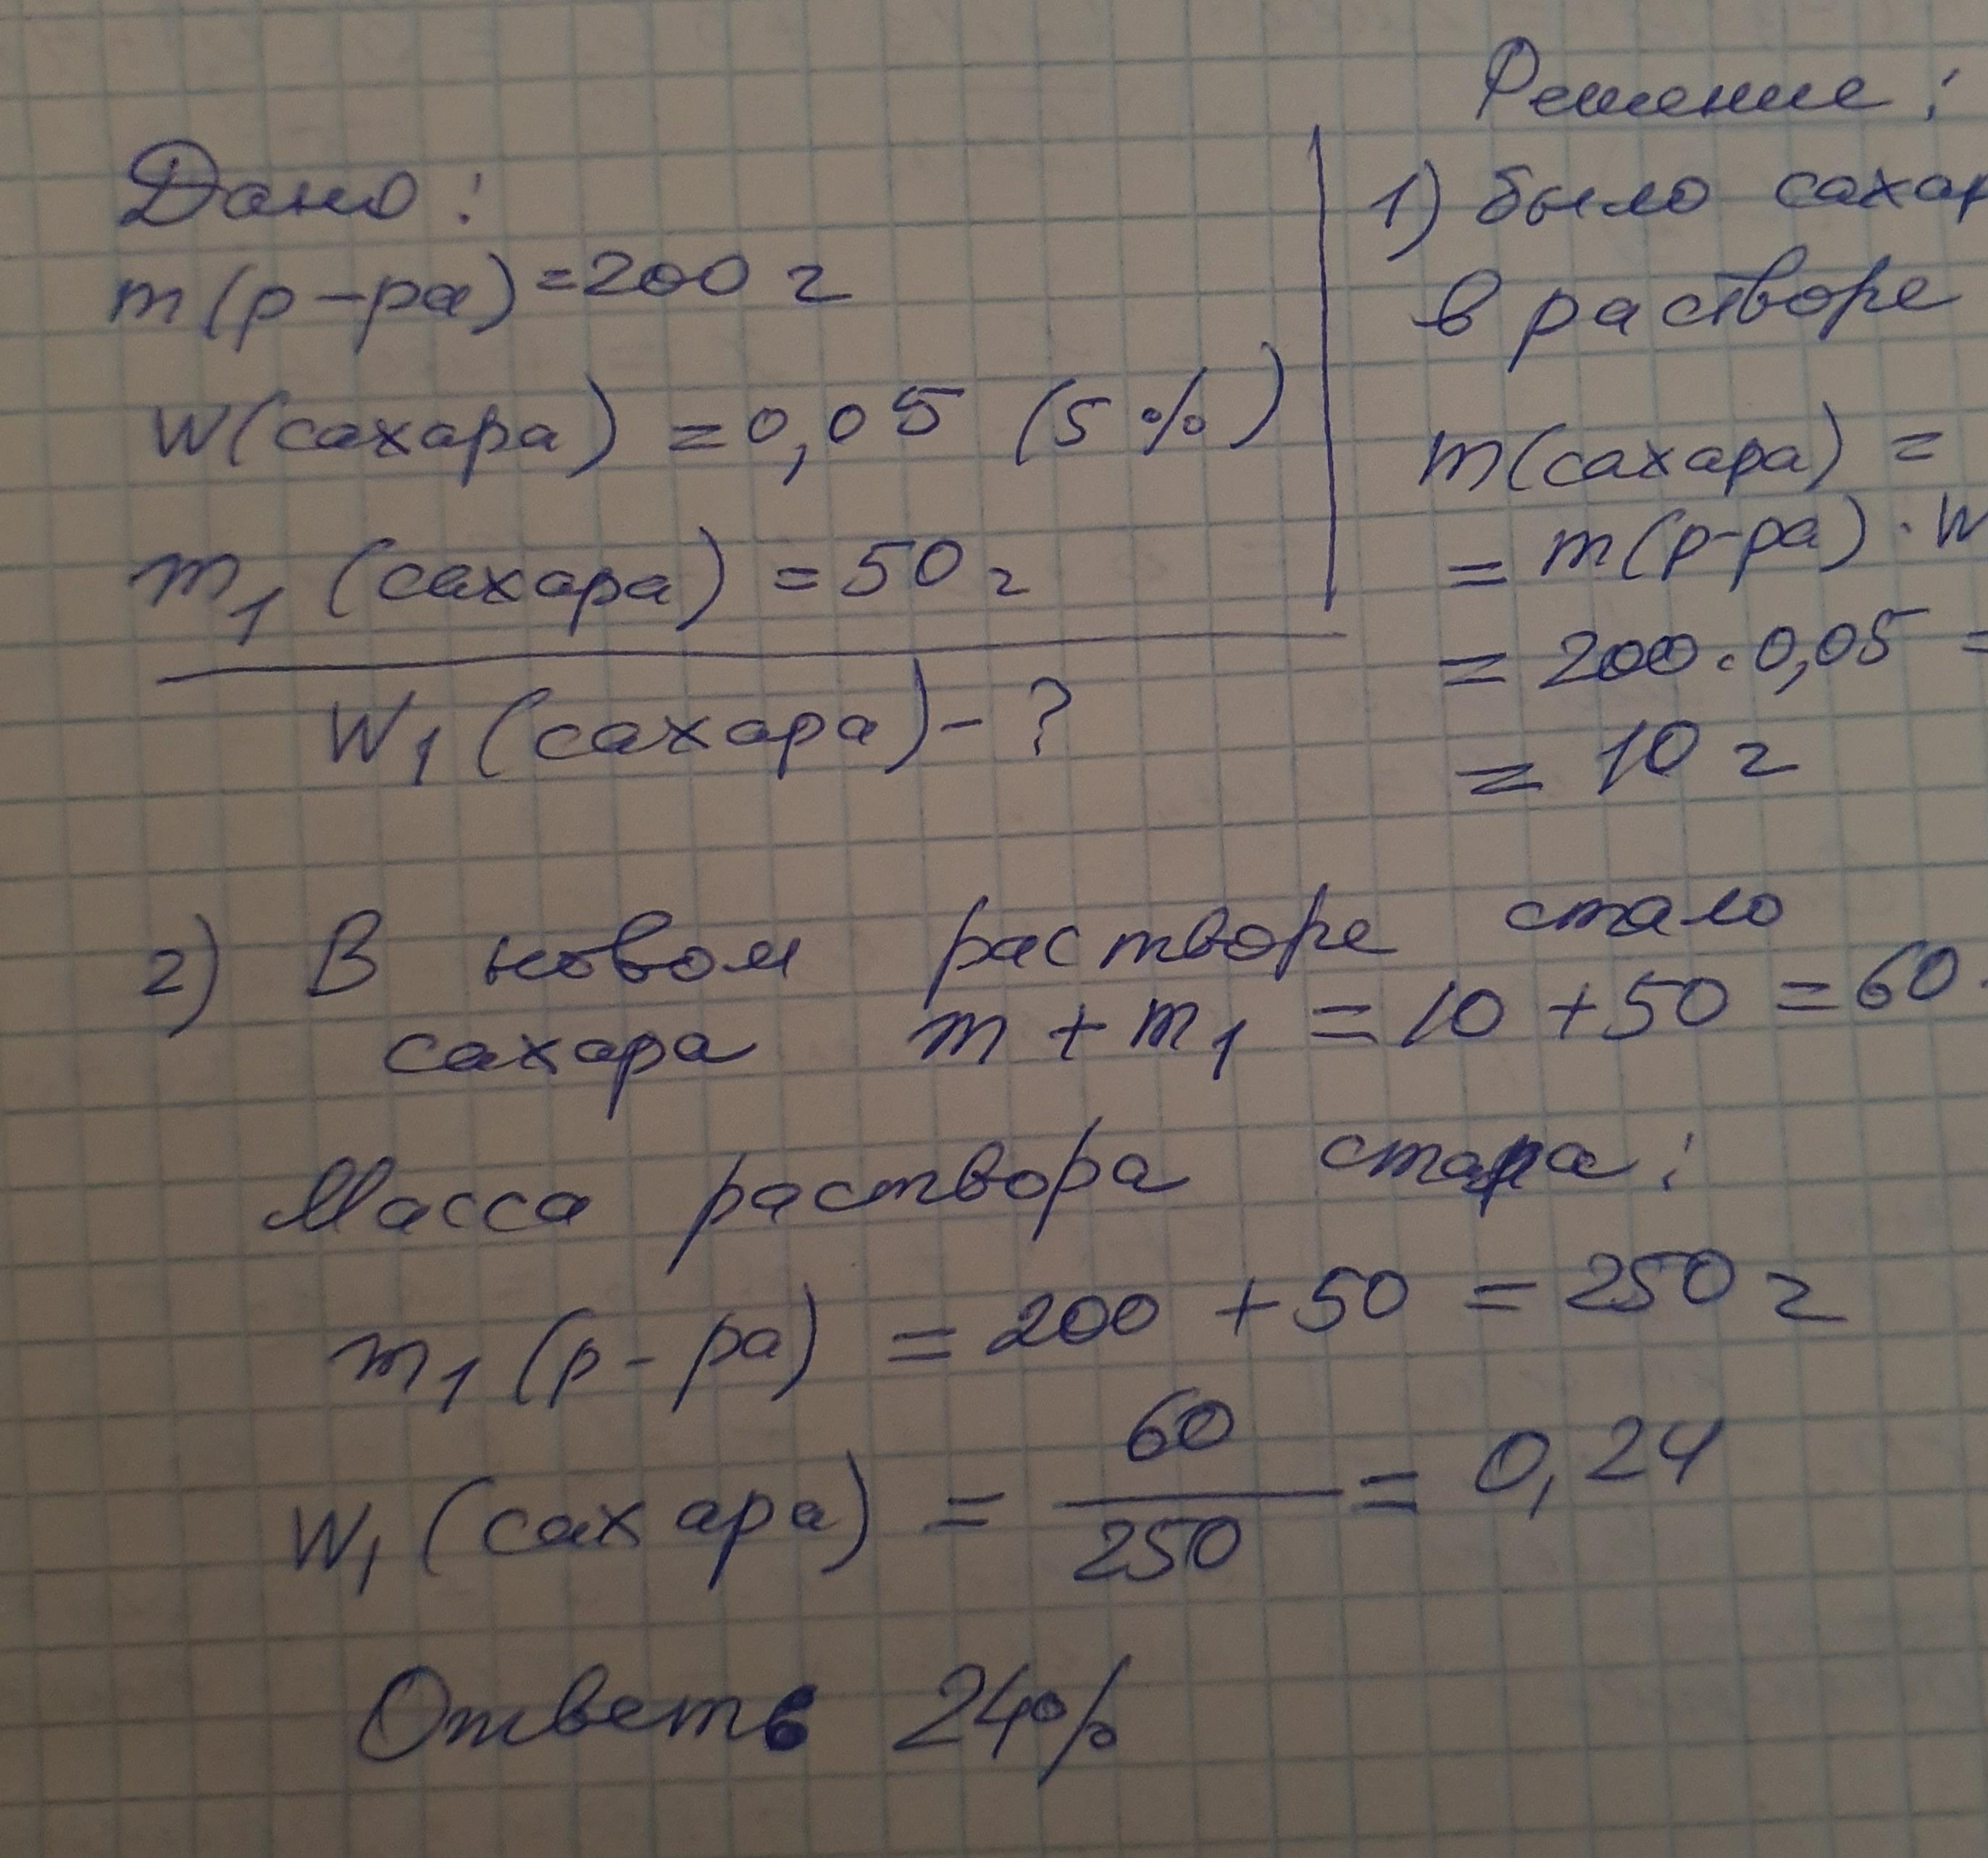 Дано:
m(р-ра)=200 г
W(сахара) =0,05 (5%)
m1 (сахара) =50 г
W1 (сахара) - ?
Решение:
1) было сахар
в растворе
m(сахара) =
= m(р-ра) · W
= 200·0,05 =
= 10 г
2) В новом растворе стало
сахара m + m1 = 10 + 50 = 60
Масса раствора стала:
m1 (р-ра) = 200 + 50 = 250 г
W1 (сахара) = 60/250 = 0,24
Ответ: 24%